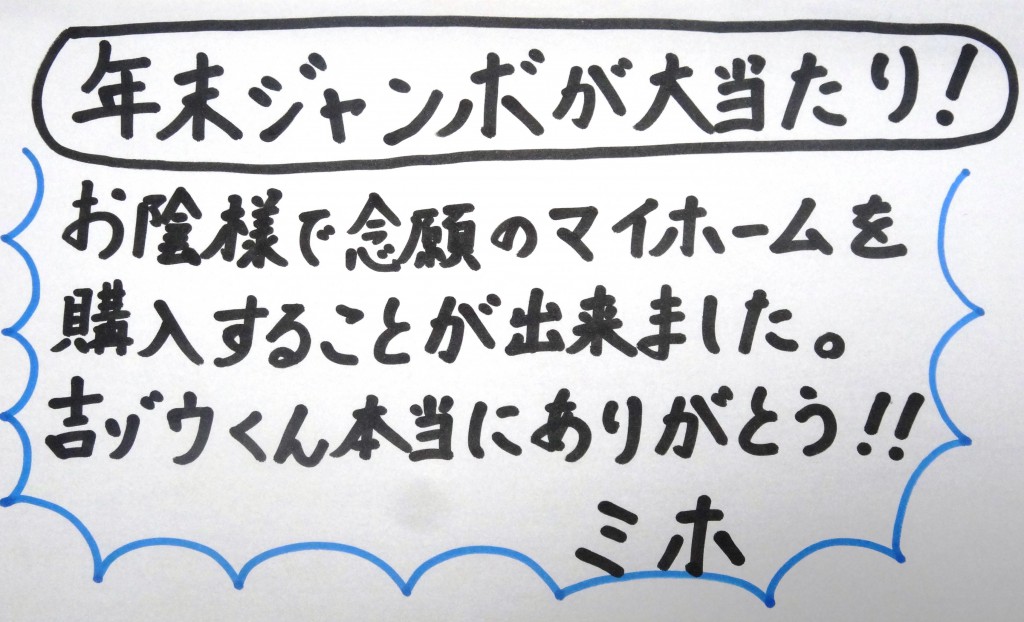 年末ジャンボが大当たり!
お陰様で念願のマイホームを
購入することが出来ました。
吉ゾウくん本当にありがとう!!
ミホ